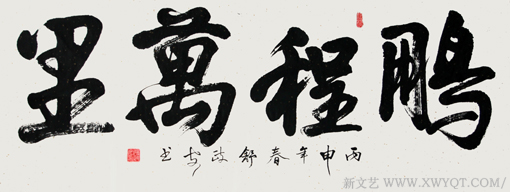 鵬程萬里
丙申年春舒
书
新文艺 WWW.XWYQT.COM